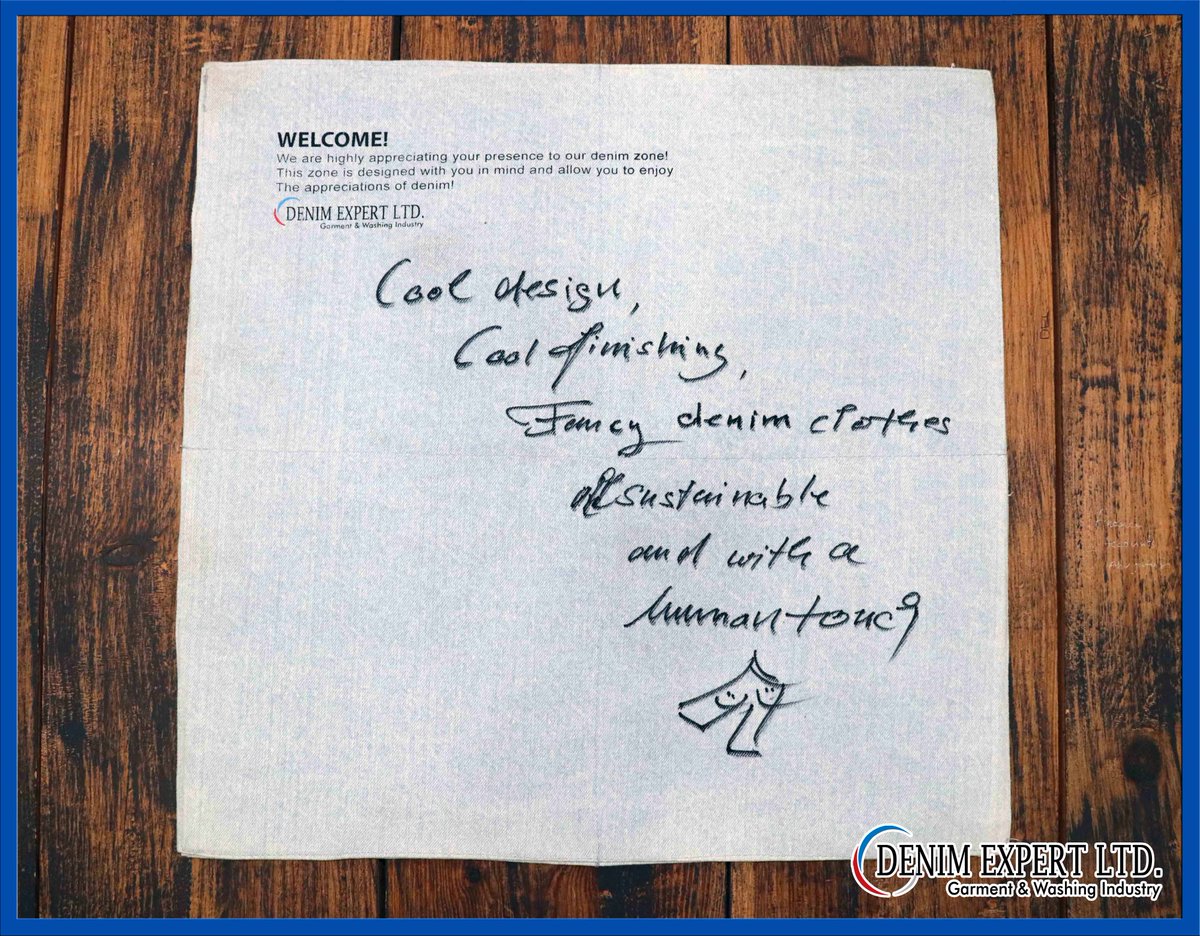 WELCOME!
We are highly appreciating your presence to our denim zone!
This zone is designed with you in mind and allow you to enjoy
The appreciations of denim!
DENIM EXPERT LTD.
Garment & Washing Industry
Cool design,
Cool finishing,
Fancy denim clothes
sustainable
and with a
human touch
DEL
DENIM EXPERT LTD.
Garment & Washing Industry